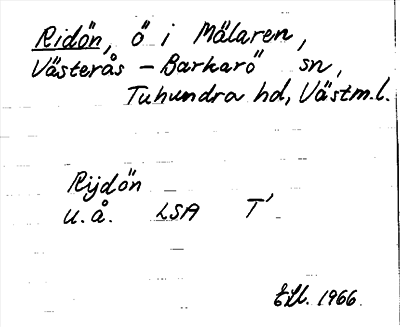 Ridön, ö i Mälaren,
Västerås - Barkarö sn,
Tuhundra hd, Västm.l.
Rijdön
u.å. LSA T'
1966.